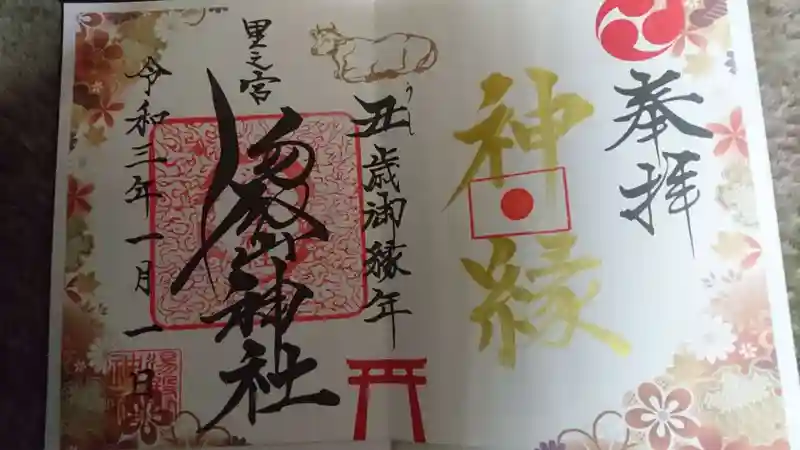 奉拝
神縁
丑歳御縁年
うし
里之宮
湯殿山神社
令和三年一月一日